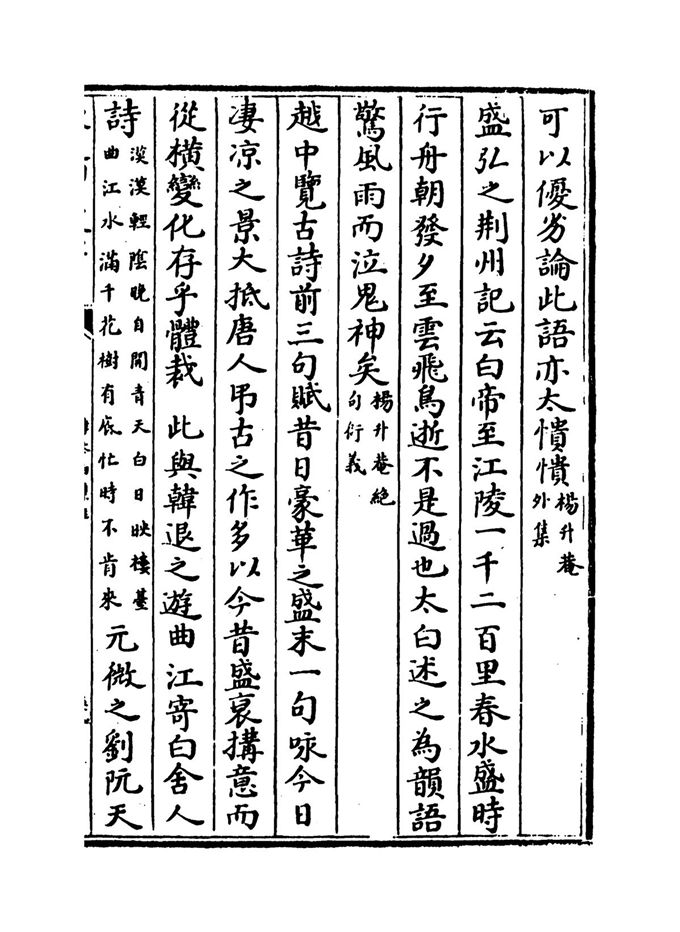 可以優劣論此語亦太憒憒楊升菴外集
盛弘之荆州記云白帝至江陵一千二百里春水盛時
行舟朝發夕至雲飛鳥逝不是過也太白述之為韻語
驚風雨而泣鬼神矣楊升菴絶句衍義
越中覽古詩前三句賦昔日豪華之盛末一句咏今日
凄凉之景大抵唐人弔古之作多以今昔盛衰搆意而
從橫變化存乎體裁 此與韓退之遊曲江寄白舍人
詩漠漠輕陰晚自開青天白日映樓臺曲江水滿千花樹有底忙時不肯來元微之劉阮天